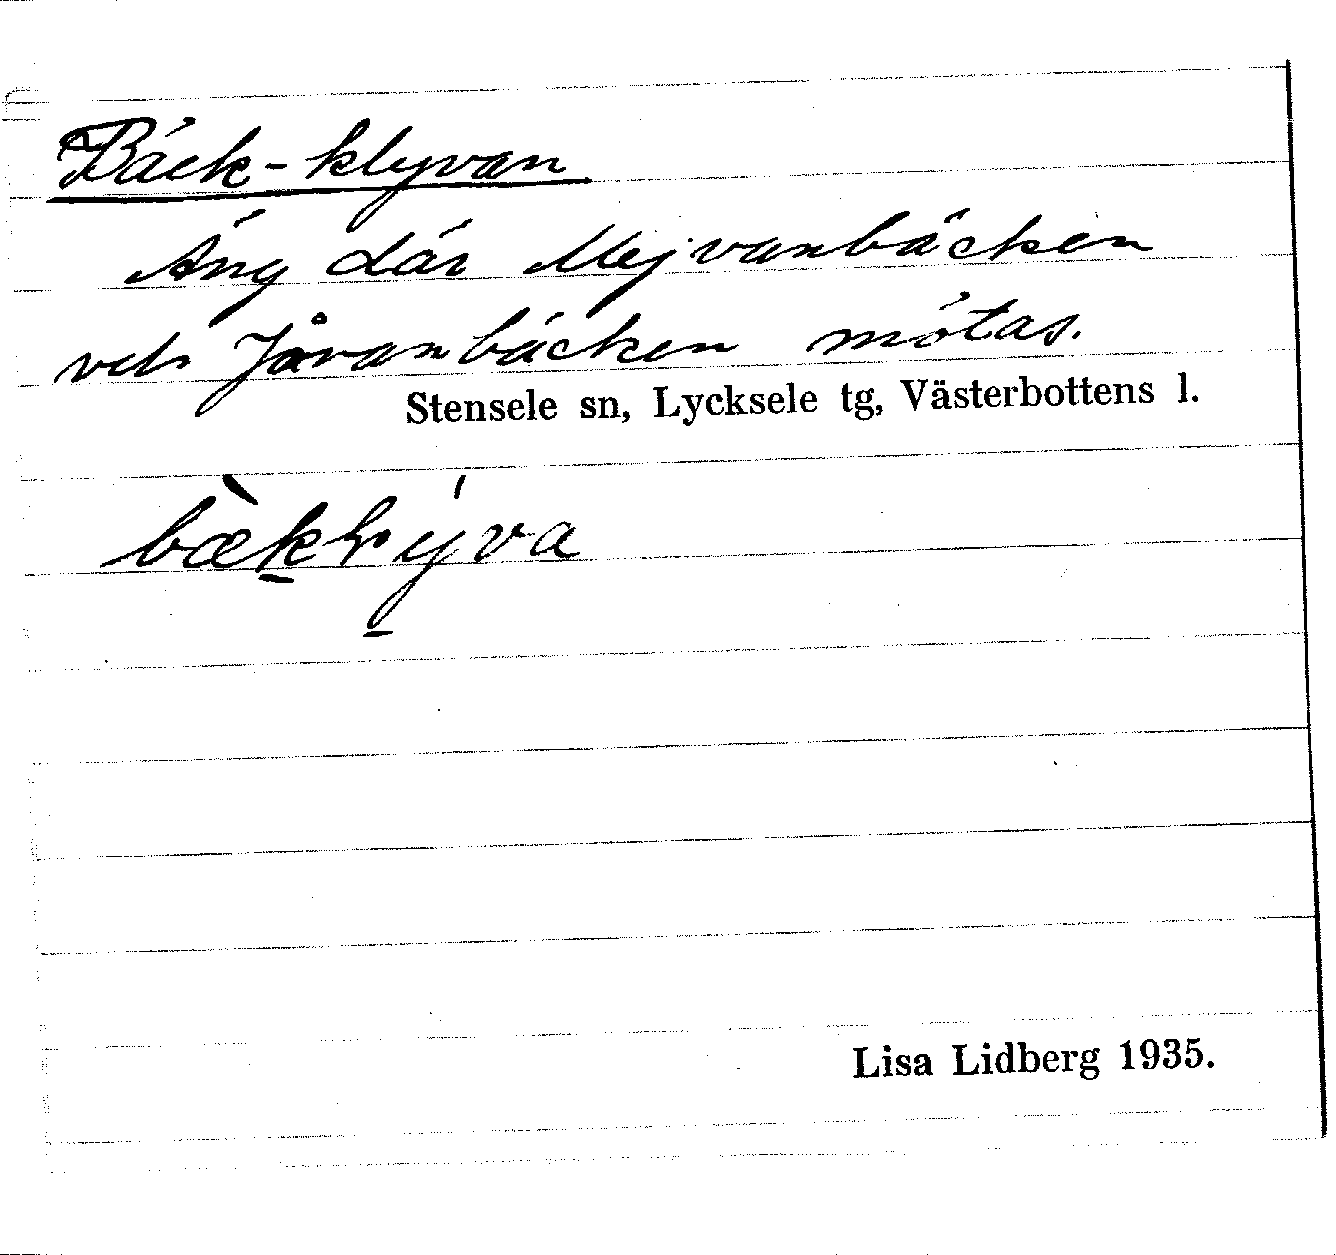 Bäck-klyvan
Äng där Mejvanbäcken
och Jåvanbäcken mötas.
Stensele sn, Lycksele tg, Västerbottens l.
Lisa Lidberg 1935.